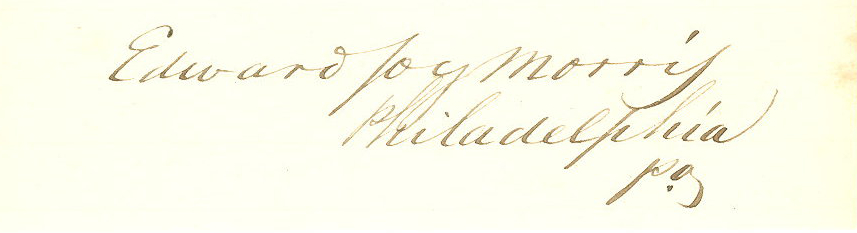 Edward Joy Morris
Philadelphia
Pa